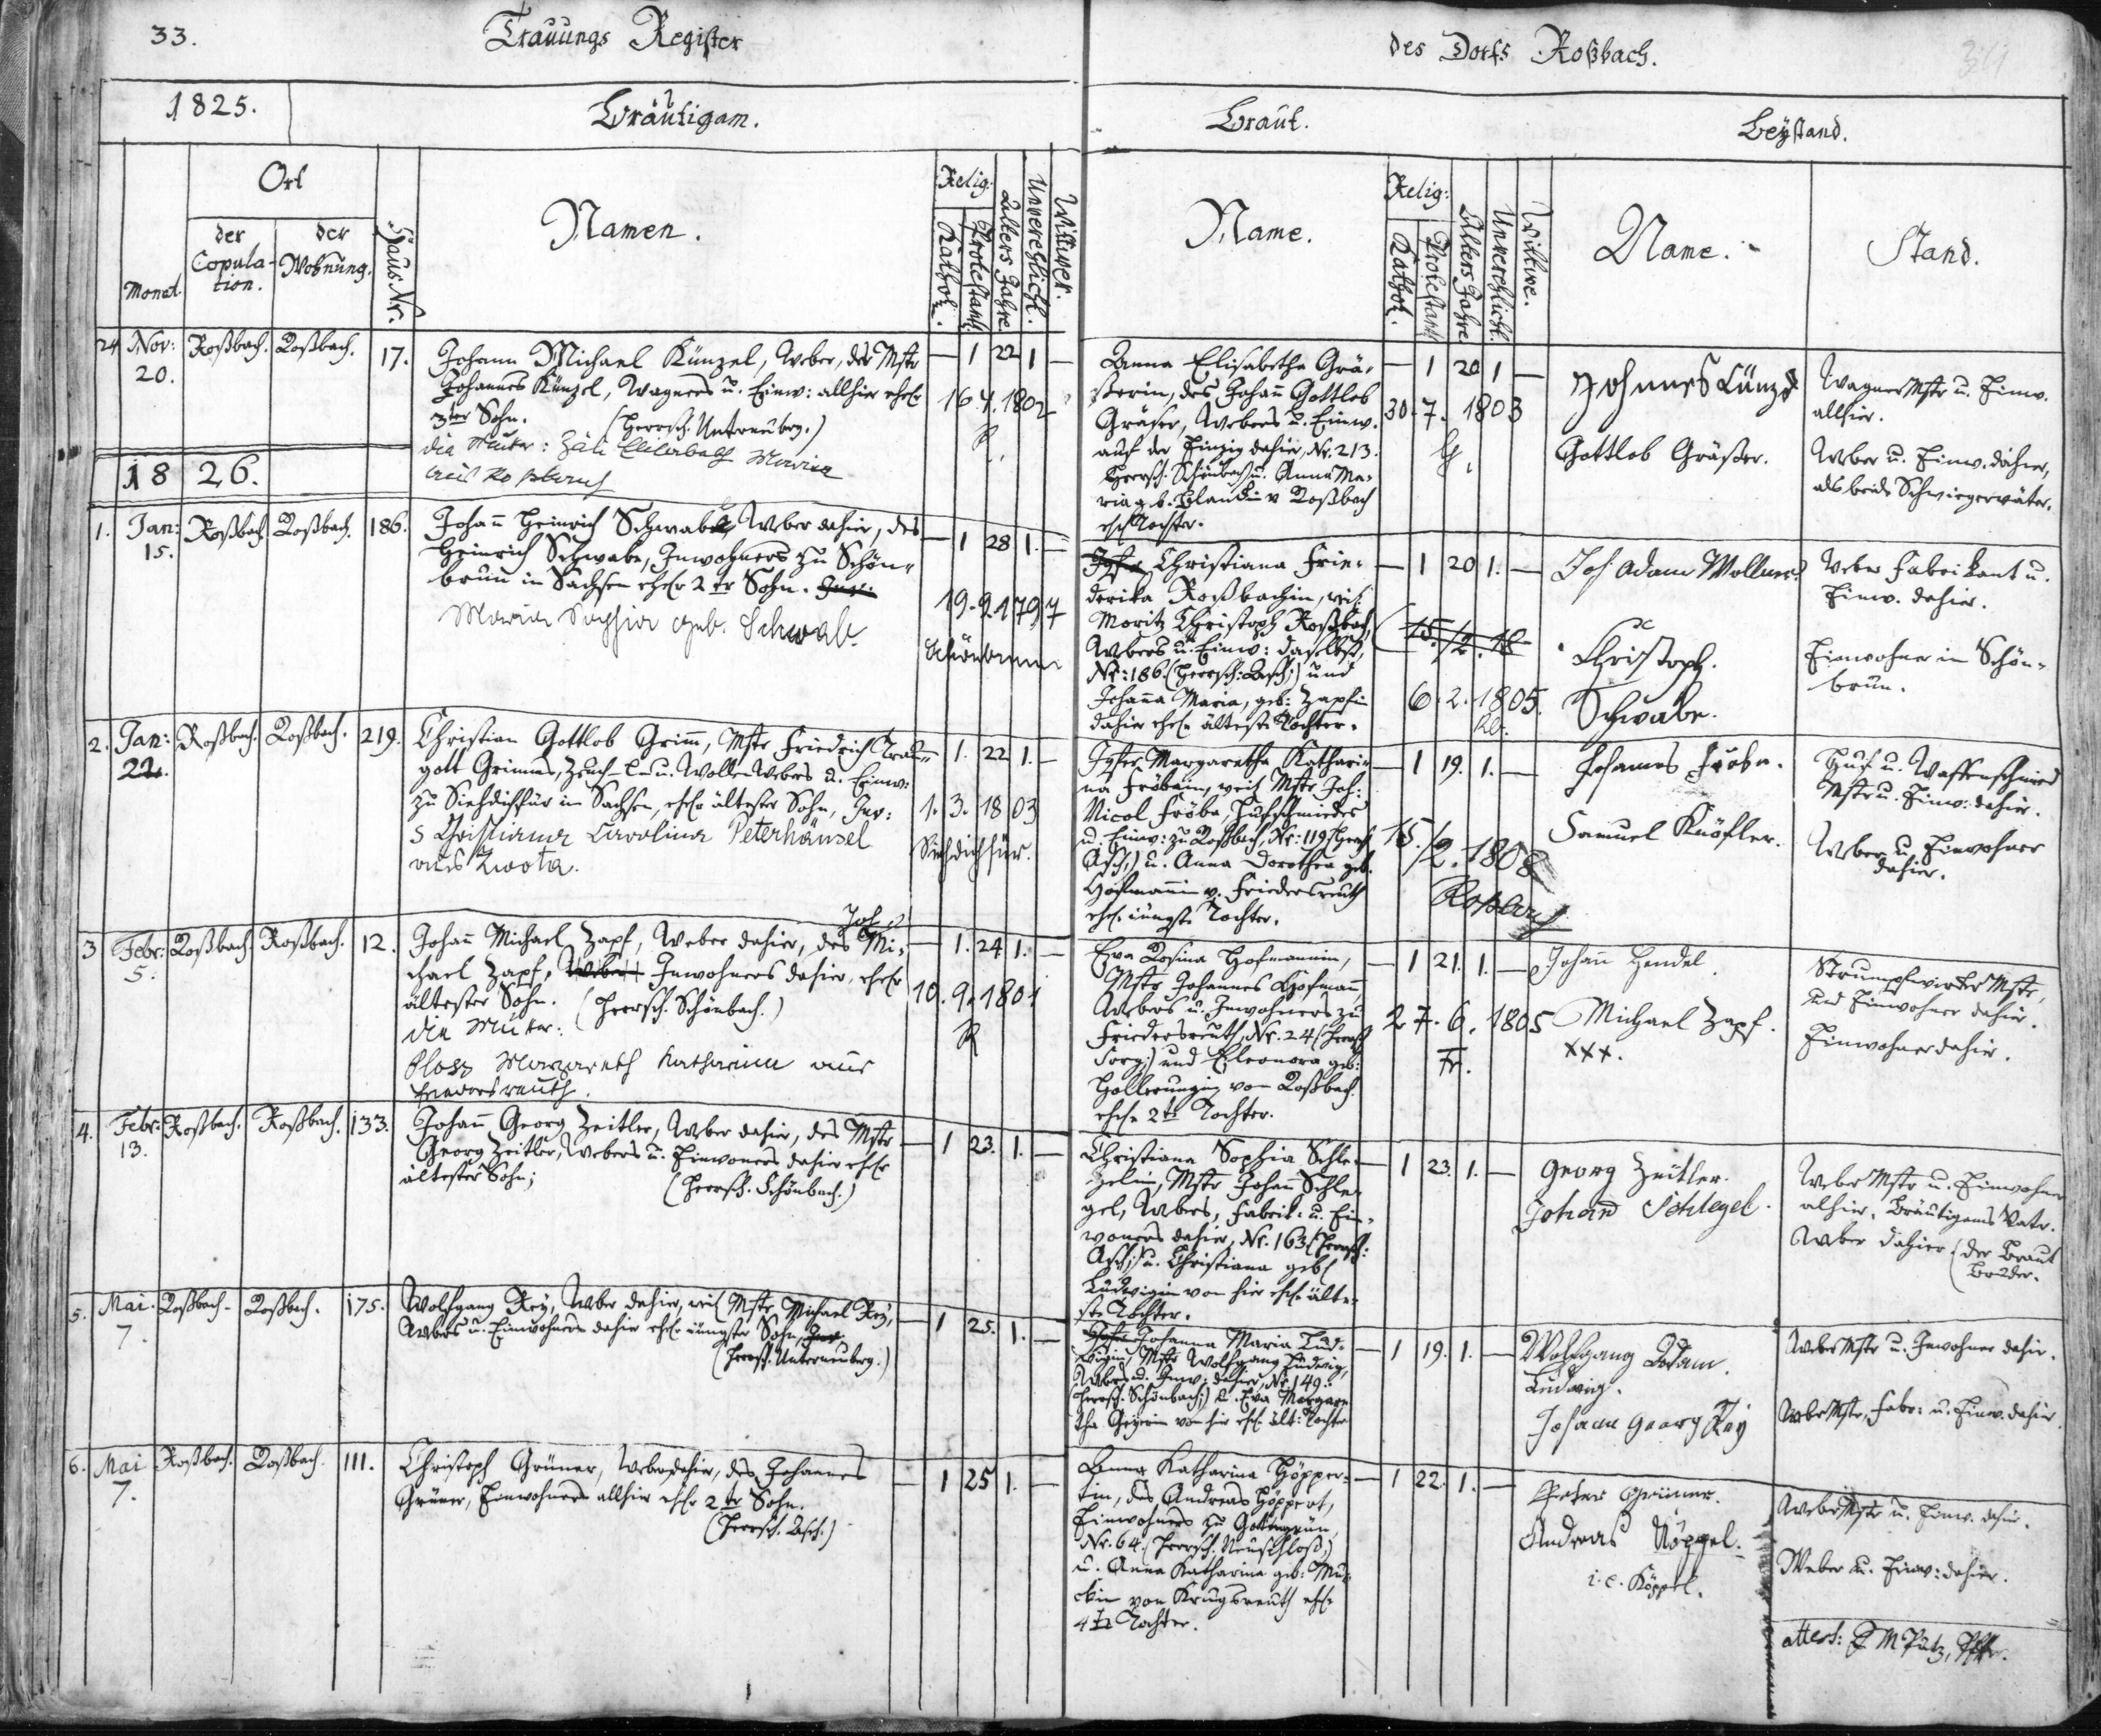 33.
Trauungs Register
des Dorfs Roßbach.
1825.
Bräutigam.
Braut.
Beystand.
Monat.
Ort
der Copula-
tion.
der
Wohnung.
Haus Nr.
Namen.
Relig:
Kathol.
Protestant.
Alters Jahre.
Unverehlicht.
Wittwer.
Name.
Relig:
Kathol.
Protestant.
Alters Jahre
Unverehlicht.
Wittwe.
Name.
Stand.
24 Nov: 20. Roßbach. Roßbach. 17.
Johann Michael Künzel, Weber, des Mstr
Johannes Künzel, Wagners u. Einw: allhier ehel
3ter Sohn. (Herrsch. Unterneuberg.)
die Mutter:
— 1 22 1 —
16. 4. 1802
R.
Anna Elisabetha Grä-
ßerin, des Johañ Gottlob
Gräßer, Webers u. Einw.
auf der dahier, Nr. 213.
Herrsch. Schönbach u. Anna Ma-
ria geb. v Roßbach
ehel Tochter.
— 1 20 1 —
30. 7. 1803
Johnes Künzel
Gottlob Gräßer.
Wagner Mstr u. Einw.
allhier.
Weber u. Einw. dahier,
als beide Schwiegerväter.
1826.
1. Jan: 15. Roßbach. Roßbach. 186.
Johañ Heinrich Schwabe Weber dahier, des
Heinrich Schwabe, Inwohners zu Schön-
brun in Sachsen ehel 2ter Sohn.
Maria Sophia geb. Schwab.
— 1 28 1. —
19. 2 1797
Schönbrunn
Jgfr Christiana Frie-
derika Roßbachin, weil
Moritz Christoph Roßbach,
Webers u. Einw: daselbst,
Nr: 186. (Herrsch: Asch;) und
Johaña Maria, geb: Zapfin
dahier ehel älteste Tochter.
— 1 20 1. —
15. /2. 18
6. 2. 1805.
Joh Adam Wollner
Christoph.
Schwabe.
Weber Fabrikant u.
Einw. dahier.
Einwohner in Schön-
brun.
2. Jan: 22. Roßbach. Roßbach. 219.
Christian Gottlob Grim̃, Mstr Friedrich Trau-
gott Grimms, Zeuch- L- u. Wollenwebers u. Einw:
zu Siehdichfür in Sachsen, ehel ältester Sohn,
s Christiana Carolina Peterhänsel
aus Zwota.
1. 22 1. —
1. 3. 1803
Siehdichfür.
Jgfer Margaretha Kathari-
na Fröbein, weil Mstr Joh:
Nicol Fröbe, Hufschmiedes
u. Einw: zu Roßbach, Nr: 119 (Herrsch
Asch;) u. Anna Dorothea geb.
Hofmannin v. Friedersreuth
ehel jüngste Tochter.
— 1 19. 1. —
15. /2. 1808
Roßbach
Johannes Fröbe.
Samuel Knöfler.
Huf u. Waffenschmied
Mstr u. Einw: dahier.
Weber u. Einwohner
dahier.
3 Febr: 5. Roßbach. Roßbach. 12.
Joh
Johañ Michael Zapf, Weber dahier, des Mi-
chael Zapf, Weber Inwohners dahier, ehel
ältester Sohn. (Herrsch. Schönbach.)
die Mutter:
Ploss Margareth Katharina aus
Friedersreuth.
— 1. 24 1. —
10. 9. 1801
R
Eva Rosina Hofmannin,
Mstr Johannes Hofmañ
Webers u. Inwohners zu
Friedersreuth, Nr. 24 (Herrsch
Sorg;) und Eleonora geb:
Hollerungin von Roßbach.
ehel 2te Tochter.
— 1 21. 1. —
27. 6. 1805
Fr.
Johañ Hendel.
Michael Zapf.
xxx.
Strumpfwirker Mstr,
und Einwohner dahier.
Einwohner dahier.
4. Febr: 13. Roßbach. Roßbach. 133.
Johañ Georg Zeitler, Weber dahier, des Mstr
Georg Zeitler, Webers u. Einwoners dahier ehel
ältester Sohn; (Herrsch. Schönbach.)
— 1 23. 1. —
Christiana Sophia Schle-
gelin, Mstr Johañ Schle-
gel, Webers, Fabrik: u. Ein-
woners dahier, Nr. 163 (Herrsch:
Asch;) u. Christiana geb
Ludwigin von hier ehel älte-
ste Tochter.
— 1 23. 1. —
Georg Zeitler.
Johañ Schlegel.
Weber Mstr u. Einwohner
alhier, Bräutigams Vater.
Weber dahier (der Braut
Bruder.
5. Mai. 7. Roßbach- Roßbach. 175.
Wolfgang Rey, Weber dahier, weil Mstr Michael Rey,
Webers u. Einwohners dahier ehel jüngster Sohn.
(Herrsch. Unterneuberg.)
1 25. 1. —
Jgfr Johanna Maria Lud-
wigin, Mstr Wolfgang Ludwig,
Webers u. Inw: dahier, Nr. 149.
(Herrsch. Schönbach;) u. Eva Margare
tha Geyerin von hier ehel ält: Tochter
— 1 19. 1. —
Wolfgang Adam
Ludwig.
Johann Georg Rey
Weber Mstr u. Inwohner dahier.
Weber Mstr, Fabr: u. Einw. dahier.
6. Mai 7. Roßbach. Roßbach. 111.
Christoph Grüner, Weber dahier, des Johannes
Grüner, Einwohners allhier ehel 2ter Sohn.
(Herrsch. Asch.)
— 1 25 1. —
Anna Katharina Höpper-
tin, des Andreas Höppert,
Einwohners zu Gottmañsgrün,
Nr. 64. (Herrsch. Neuschloß;)
u. Anna Katharina geb: Mü-
ckin von Krugsreuth ehel
4te Tochter.
— 1 22. 1. —
Peter Grüner.
Andreas Köppel.
i. e. Köppel.
Weber Mstr u. Einw. dahier.
Weber u. Einw: dahier.
attest: Putz, Pfr.